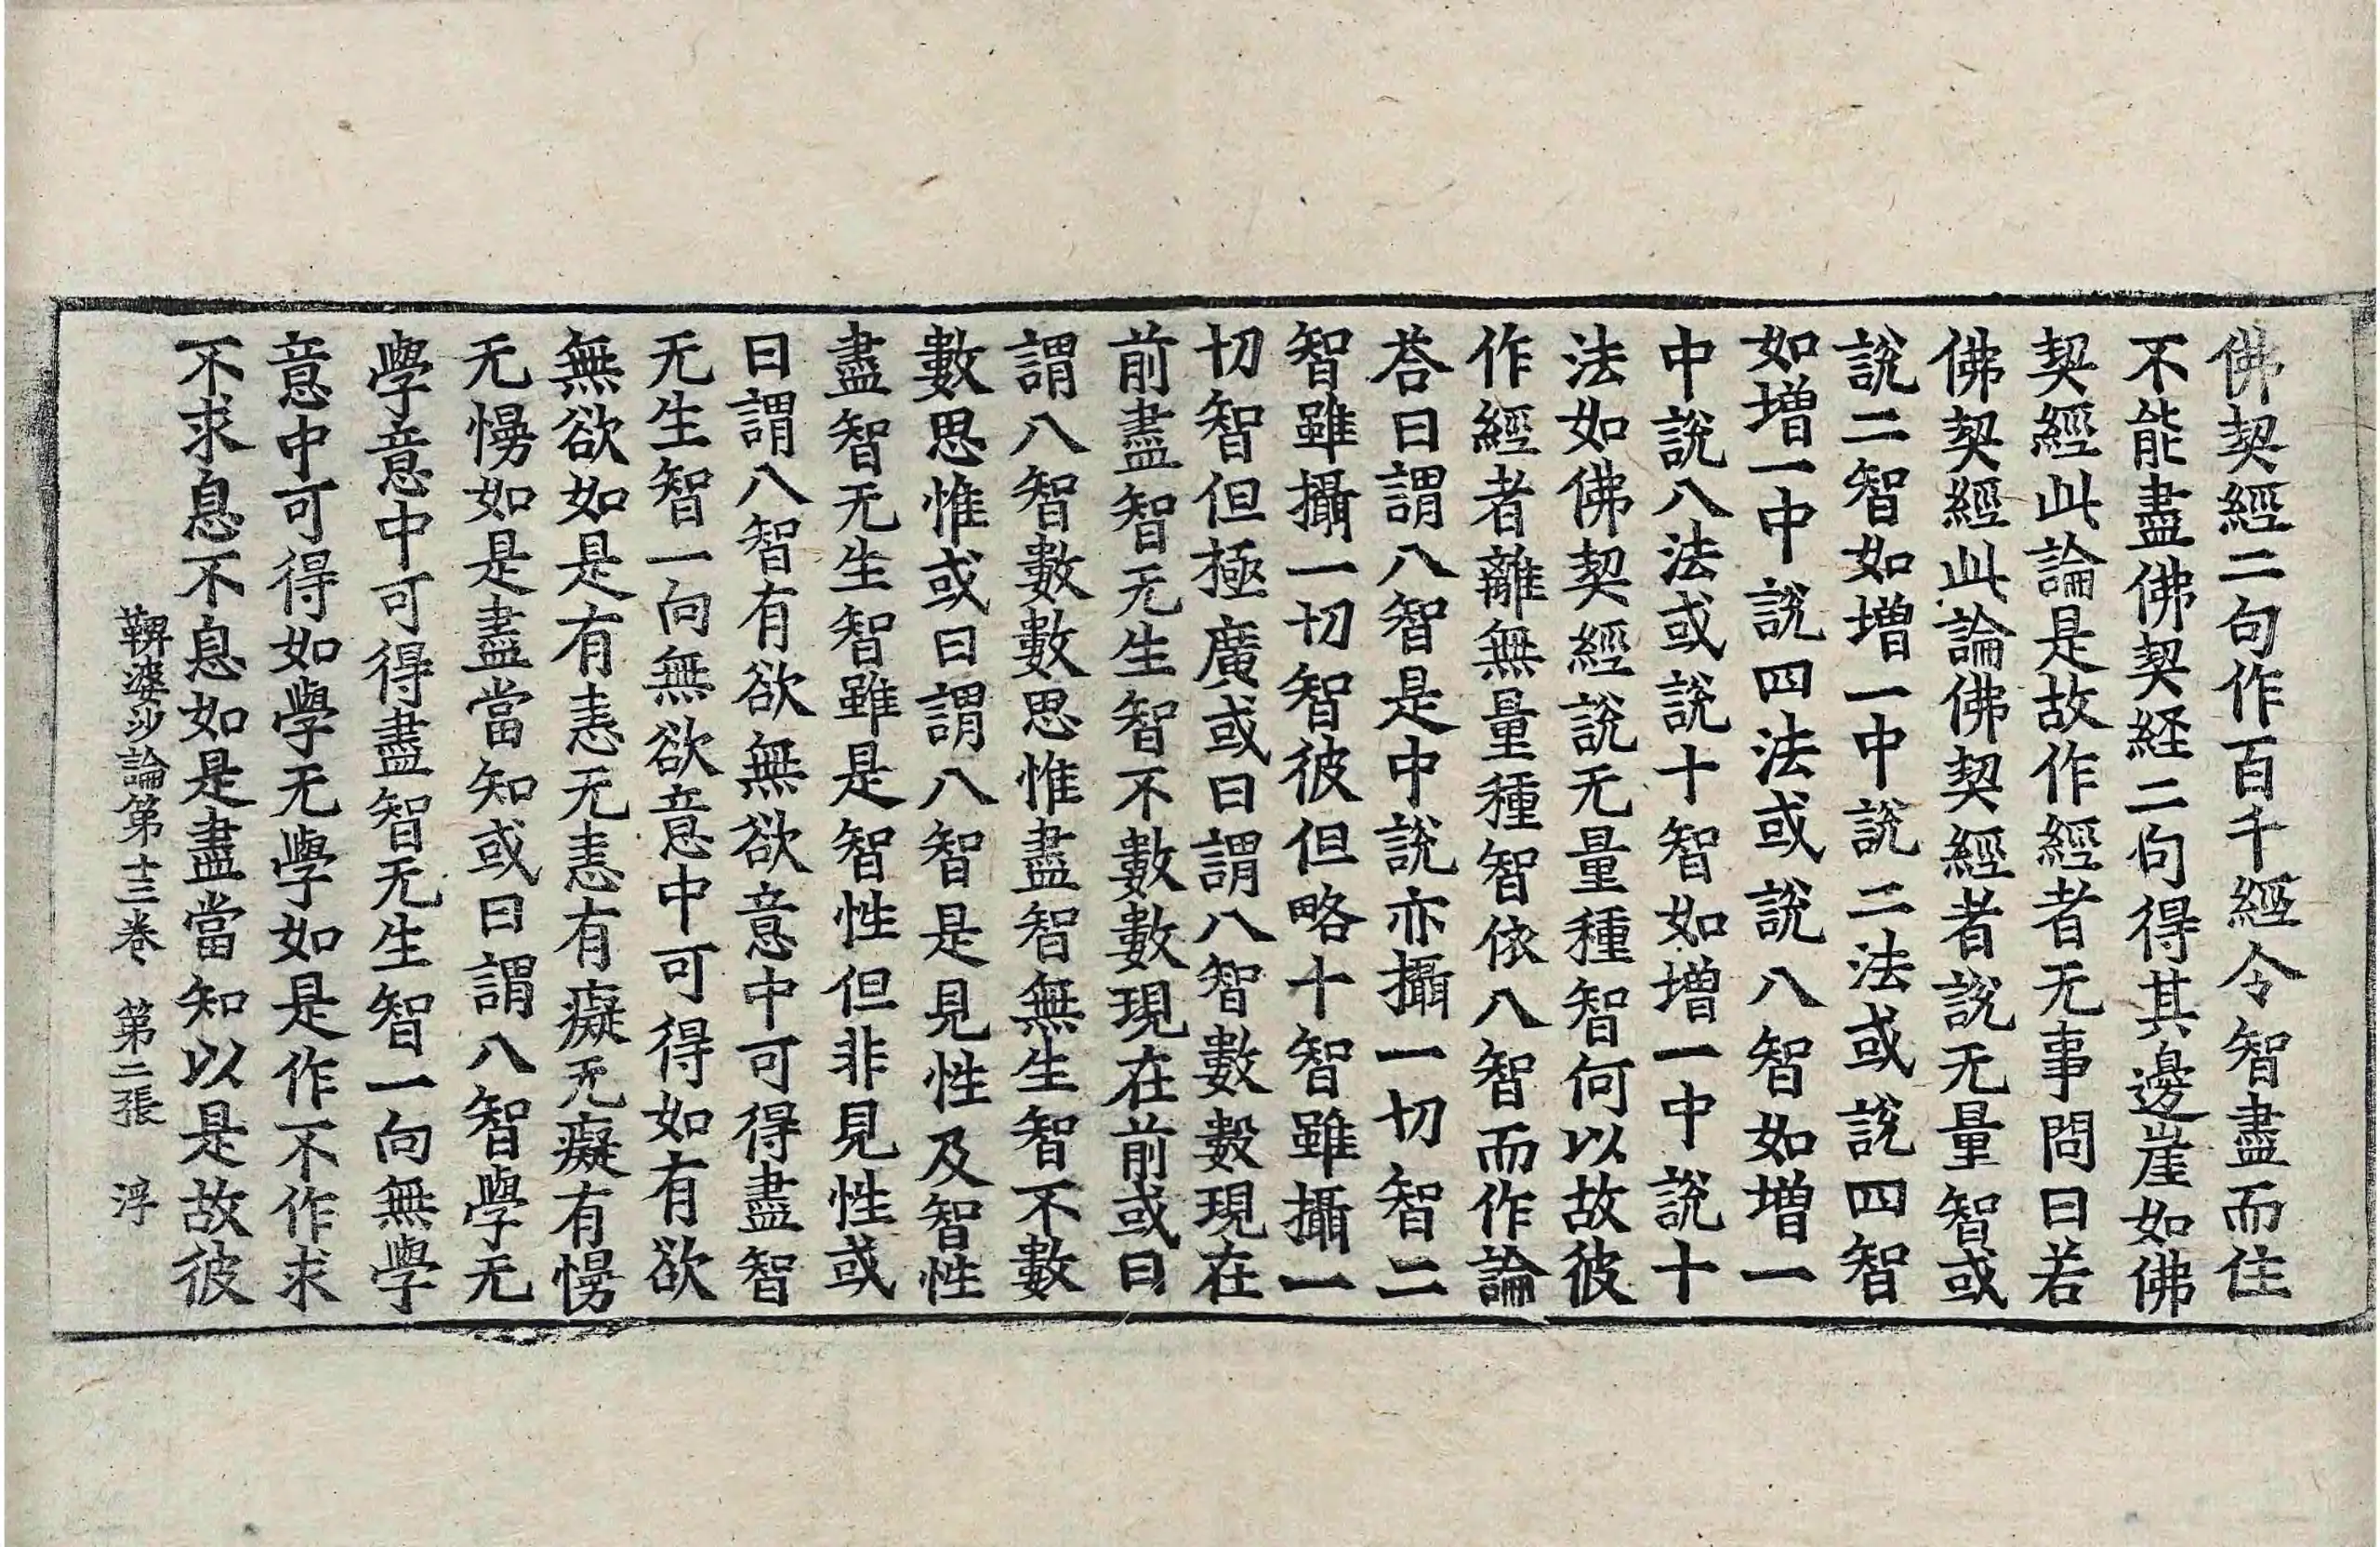 佛契經二句作百千經令智盡而住
不能盡佛契経二句得其邊崖如佛
契經此論是故作經者无事問曰若
佛契經此論佛契經者說无量智或
說二智如增一中說二法或說四智
如增一中說四法或說八智如增一
中說八法或說十智如增一中說十
法如佛契經說无量種智何以故彼
作經者離無量種智依八智而作論
荅曰謂八智是中說亦攝一切智二
智雖攝一切智彼但略十智雖攝一
切智但極廣或曰謂八智數數現在
前盡智无生智不數數現在前或曰
謂八智數數思惟盡智無生智不數
數思惟或曰謂八智是見性及智性
盡智无生智雖是智性但非見性或
曰謂八智有欲無欲意中可得盡智
无生智一向無欲意中可得如有欲
無欲如是有恚无恚有癡无癡有慢
无慢如是盡當知或曰謂八智學无
學意中可得盡智无生智一向無學
意中可得如學无學如是作不作求
不求息不息如是盡當知以是故彼
鞞婆沙論第十三卷 第二張 浮